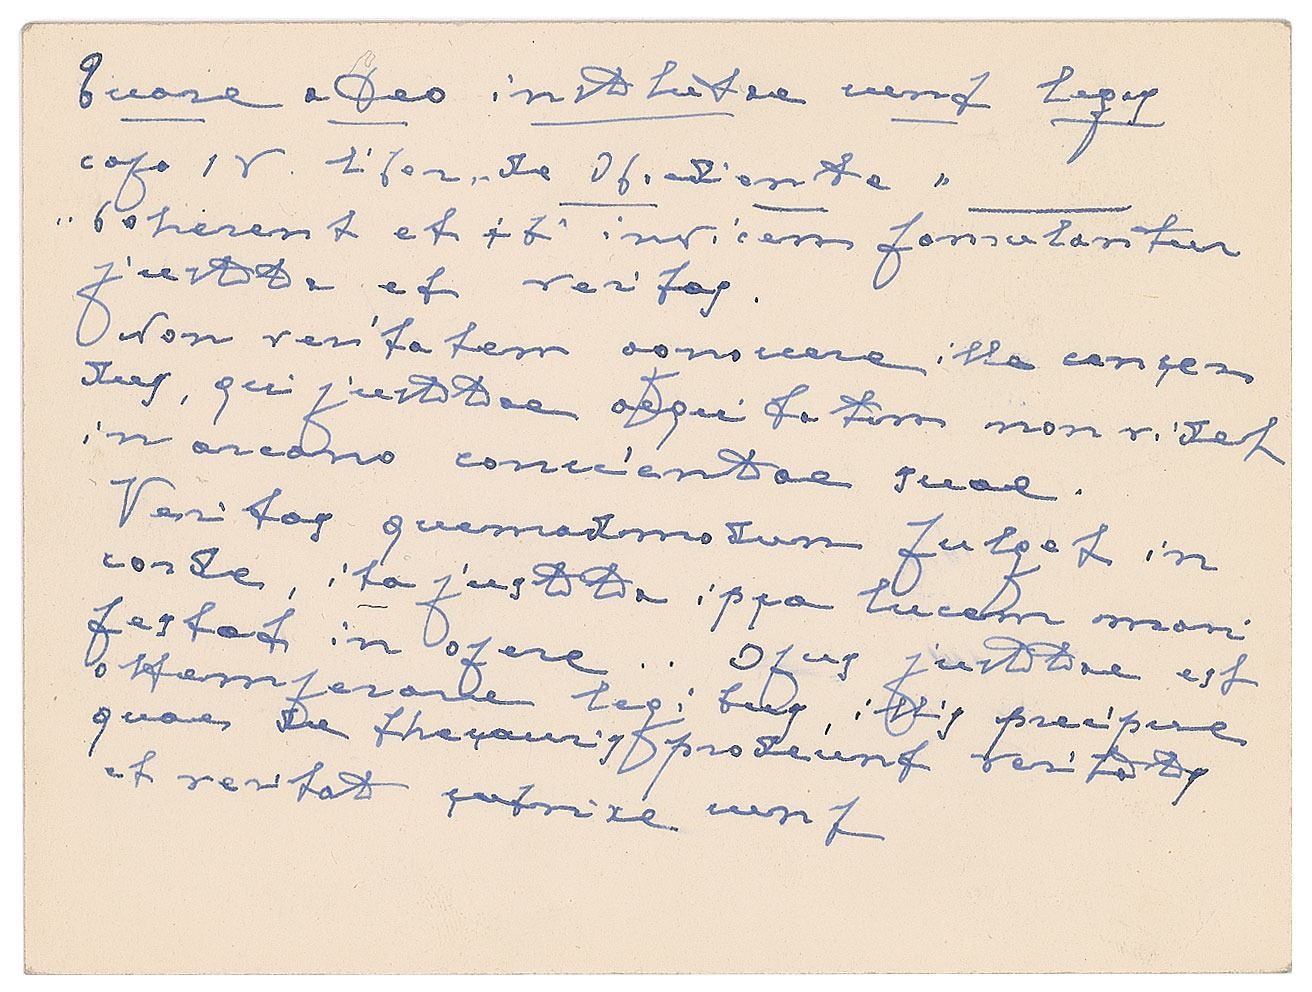 Quare a Deo institutae sunt leges
capo IV. liber "de Obediente"
"Coherent et sibi invicem famulantur
justitia et veritas.
Non veritatem agnoscere ille censen
dus, qui justitiae aequitatem non videt
in arcano conscientiae suae.
Veritas quemadmodum fulget in
corde, ita justitia ipsa lucem mani
festat in opere .. Opus justitiae est
obtemperare legibus, illis precipue
quae de thesauris prodeunt veritatis
et veritati subnixe sunt